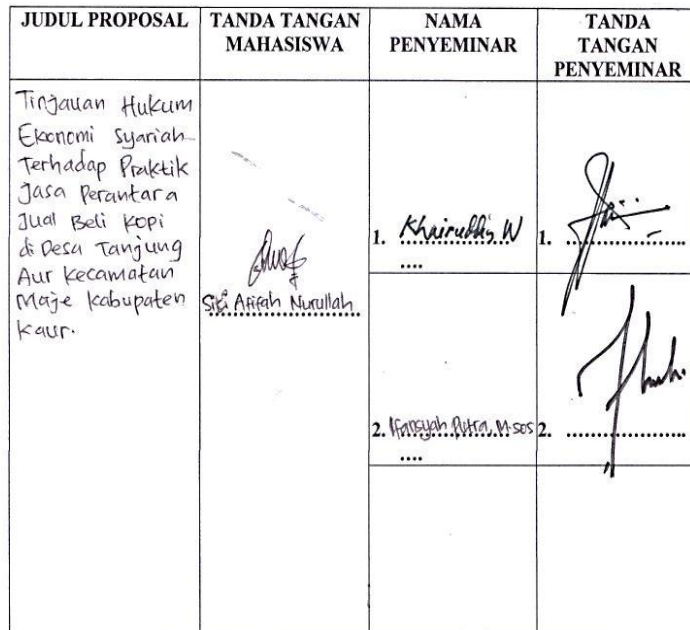 JUDUL PROPOSAL
TANDA TANGAN
MAHASISWA
NAMA
PENYEMINAR
TANDA
TANGAN
PENYEMINAR
Tinjauan Hukum
Ekonomi Syariah
Terhadap Praktik
Jasa Perantara
Jual Beli Kopi
di Desa Tanjung
Aur Kecamatan
Maje Kabupaten
Kaur.
Siti Afifah Nurullah
1. Khairuddin W
....
1. ....................
2. Ifansyah Putra, M.sos
....
2. ....................